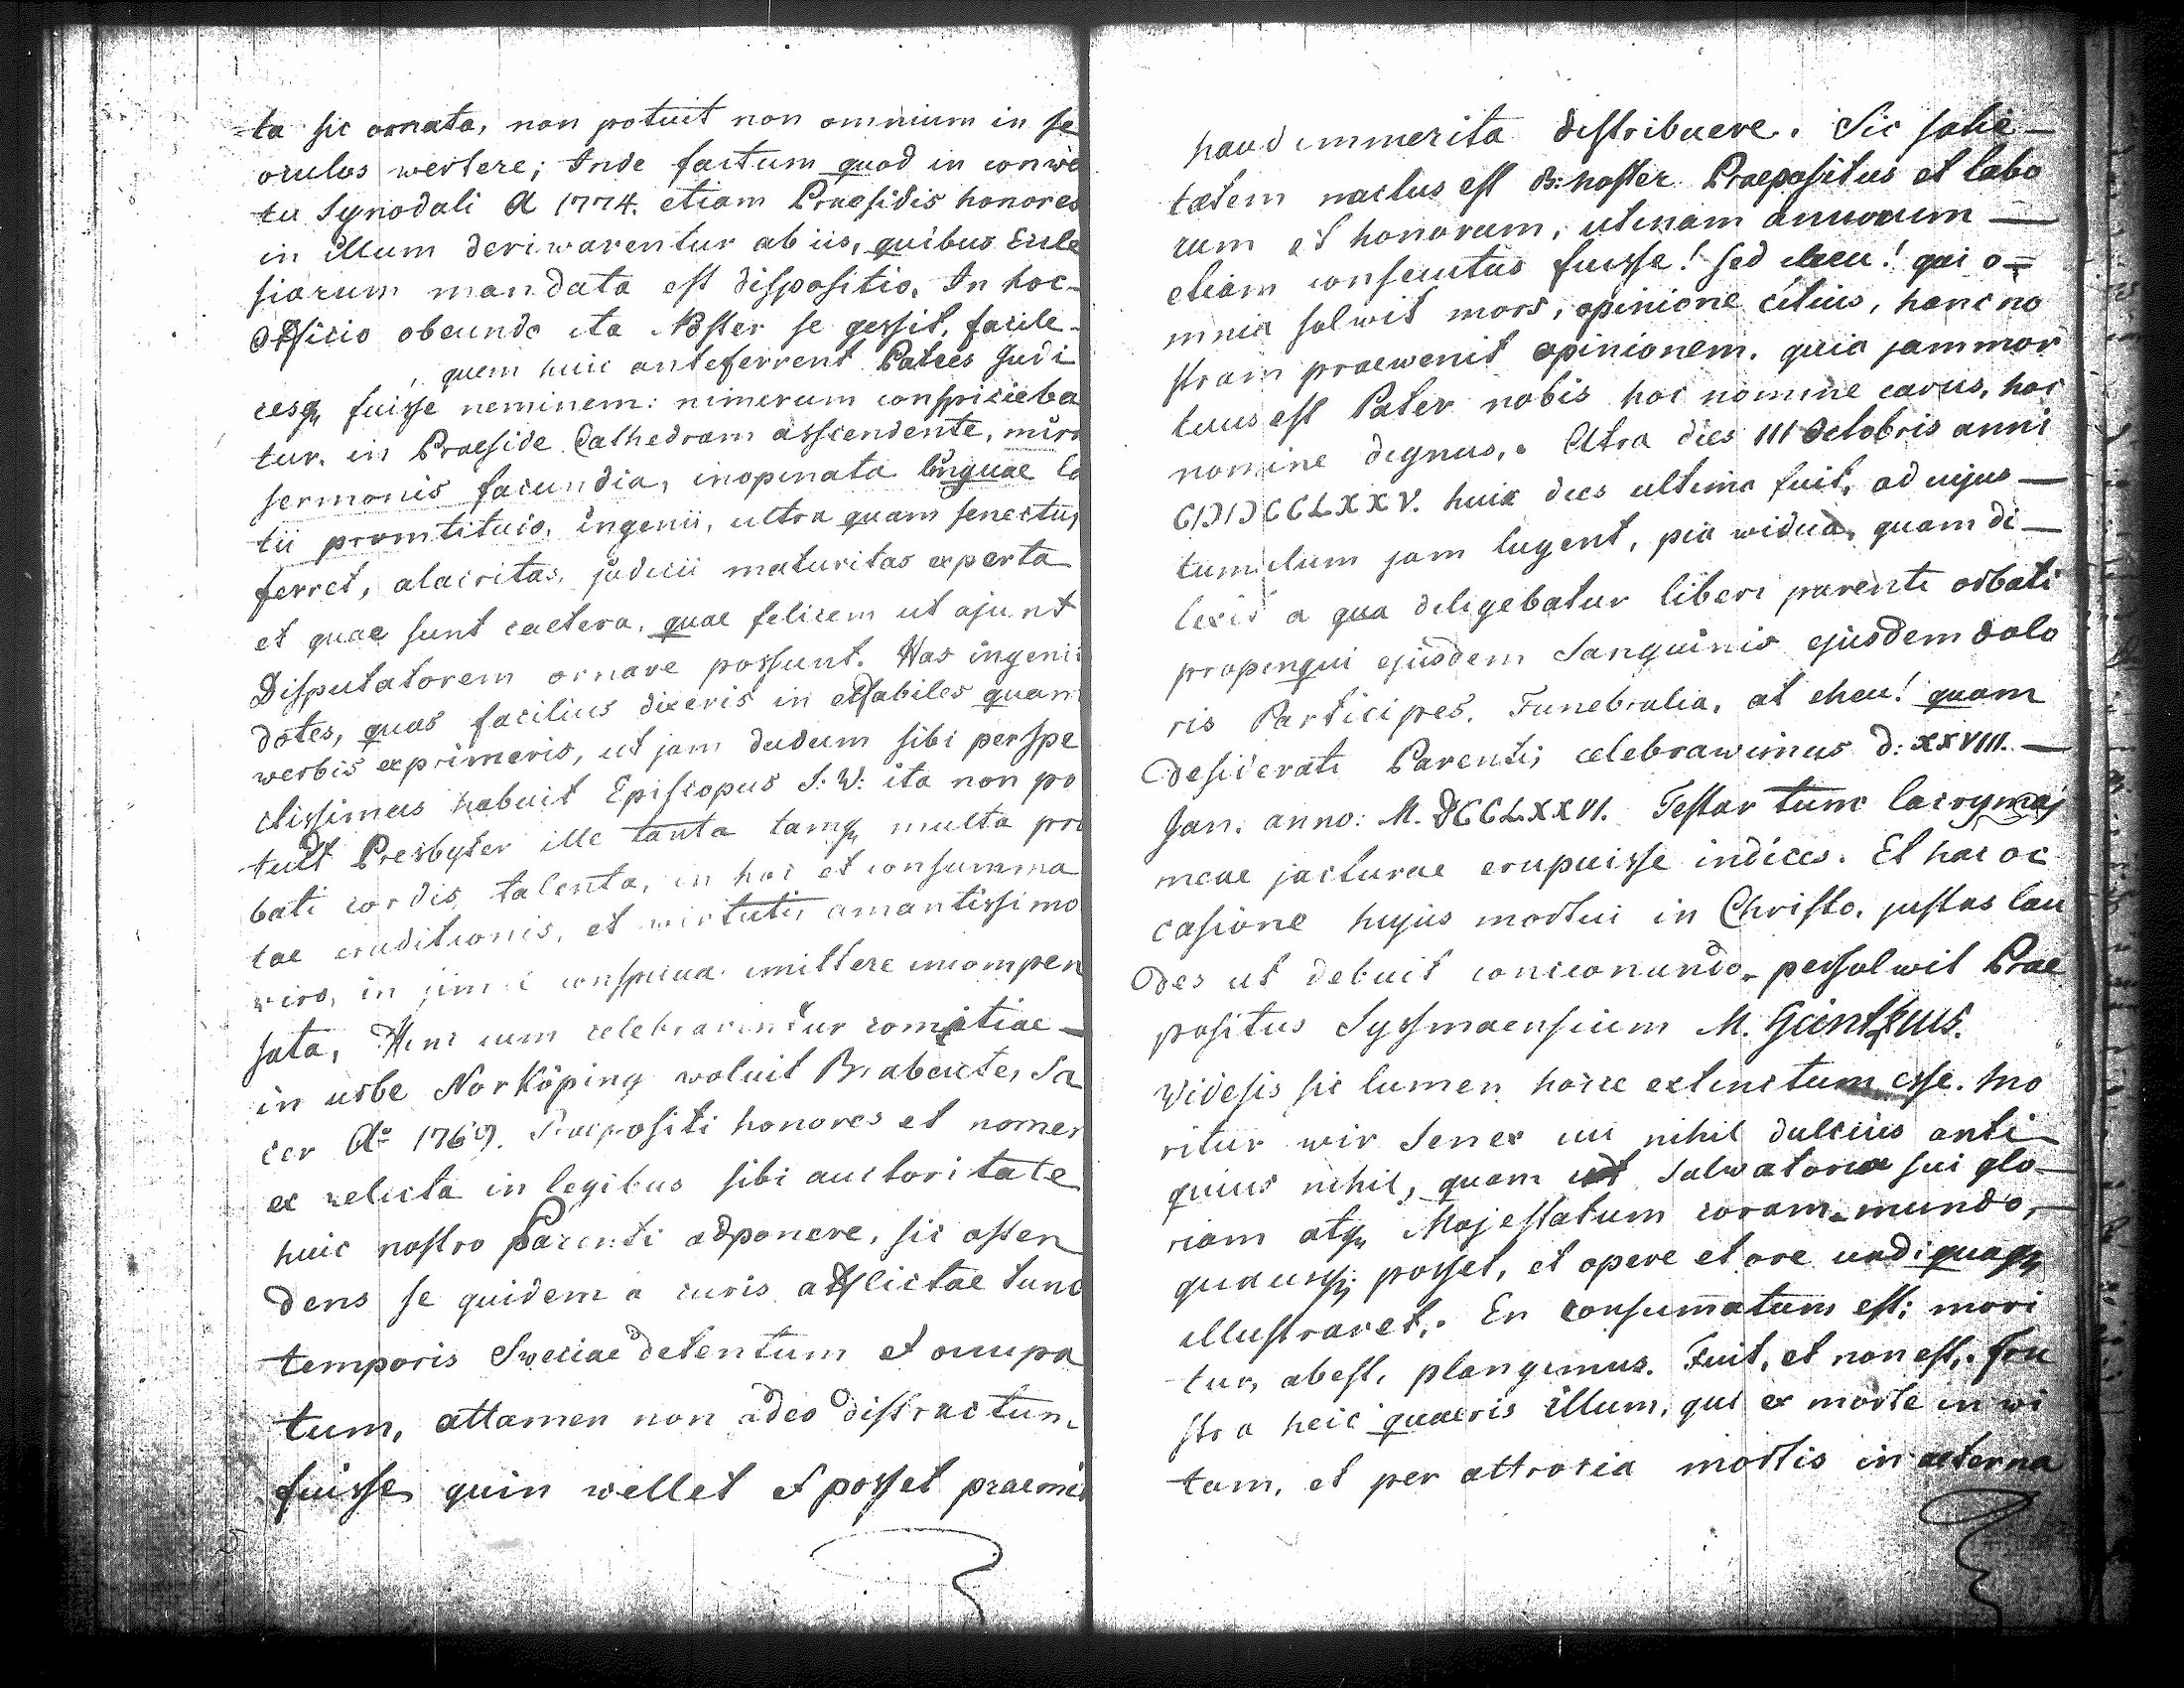 ta sic ornata, non potuit non omnium in se
oculos wertere; Inde factum quod in conwe
tu Synodali A 1774. etiam Praesidis honores
in illum deriwarentur ab iis, quibus Eccle
siarum mandata est dispositio. In hoc
Officio obeundo ita Noster se gessit, facile
quem huic anteferrent Patres Judi
cesq fuisse neminem: nimerum conspicieba
tur. in Praeside Cathedram asscendente, mira
sermonis facundia, inopinata linguae La
tii promtituio, ingenii, ultra quam senectus
ferret, alacritas, judicii maturitas experta
et quae sunt caetera, quae felicem ut ajunt
Disputatorem ornare possunt. Has ingenii
dotes, quas facilius dixeris in effabiles quam
werbis exprimeris, ut jam dudum sibi perspe
ctissimus habuit Episcopus S. W: ita non po
tuit Presbyter ille tanta tamq multa pro
bati cordis, talenta, in hoc et consumma
tae eruditionis, et wirtutis amantissimo
wiro, in conspicua imittere incompen
sata, Hinc cum celebrarentur comitiae
in urbe Norköping woluit Braheus, Sa
cer Ao 1769. Praepositi honores et nomen
ex relicta in legibus sibi auctoritate
huic nostro Parenti adponere, sic osten
dens se quidem a curis afflictae tunc
temporis Sweciae detentum et occupa
tum, attamen non adeo distractum
fuisse quin wellet et posset praemia
haud immerita distribuere. Sic satie-
tatem nactus est B: noster Praepositus et labo
rum et honorum, utinam annorum
etiam consecutus fuisse! sed eheu! qui o=
mnia solwit mors, opinione citius, hanc no
stram praewenit opinionem. quia jam mor
tuus est Pater nobis hoc nomine carus, hoc
nomine dignus. Atra dies III Octobris anni
CIↃIↃCCLXXV. huic dies ultima fuit, ad cujus
tumulum jam lugent, pia widua, quam di
lexit a qua diligebatur liberi parente orbati
propinqui ejusdem Sanguinis ejusdem dolo
ris Participes. Funebralia, at eheu! quam
desiderati Parentis celebrawimus d: XXVIII.
Jan. anno: M.DCCLXXVI. Testor tunc lacrymas
meae jacturae erupuisse indices. Et hac oc
casione hujus mortui in Christo, justas lau
des ut debuit concionando persolwit Prae
positus Syssmaensium M. Günthus.
Videsis sic lumen hocce extinctum esse. Mo
ritur wir Senex cui nihil dulcius anti
quius nihil, quam ut Salwatoris sui glo
riam atq Majestatum coram mundo,
quausq: posset, et opere et ore undiquaq
illustraret. En consumatum est: mori
tur, abest, plangimus. Fuit, et non est. fru
stra heic quaeris illum, qui ex morte in wi
tam, et per attrocia mortis in aeterna